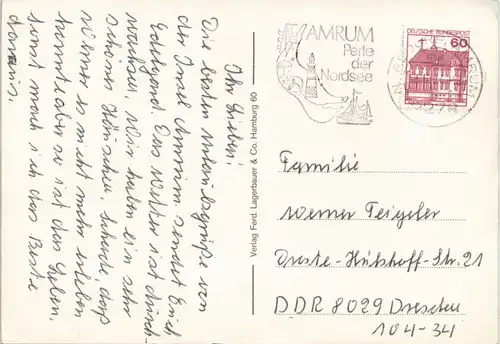 Ihr Lieben!
Die besten Urlaubsgrüße von
der Insel Amrum sendet Euch
Das Wetter ist durch-
wachsen. Wir haben ein sehr
schönes Häuschen, schade, daß
es nicht mehr erleben
konnte aber so ist das Leben.
Sonst mach ich das Beste
daraus.
Verlag Ferd. Lagerbauer & Co. Hamburg 60
AMRUM
Perle
der
Nordsee
DEUTSCHE BUNDESPOST
60
Familie
Werner Teigeler
Droste-Hülshoff-Str. 21
DDR 8029 Dresden
104-34